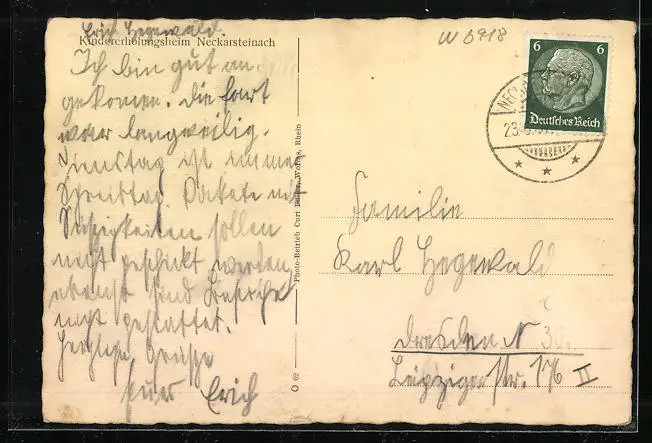 Erich Hegewald.
Kindererholungsheim Neckarsteinach
Ich bin gut an
gekomen. Die fart
war langweilig.
Dienstag ist immer
Schreibtag. Pakete mit
Süßigkeiten sollen
nicht geschickt werden,
ebenso sind Besuche
nicht gestattet.
Herzliche Grüße
Euer Erich
Photo-Betrieb Curt Worms, Rhein
O 62
W 6918
6 6
Deutsches Reich
23.
Familie
Karl Hegewald
Dresden N
Leipziger Str. 176 II